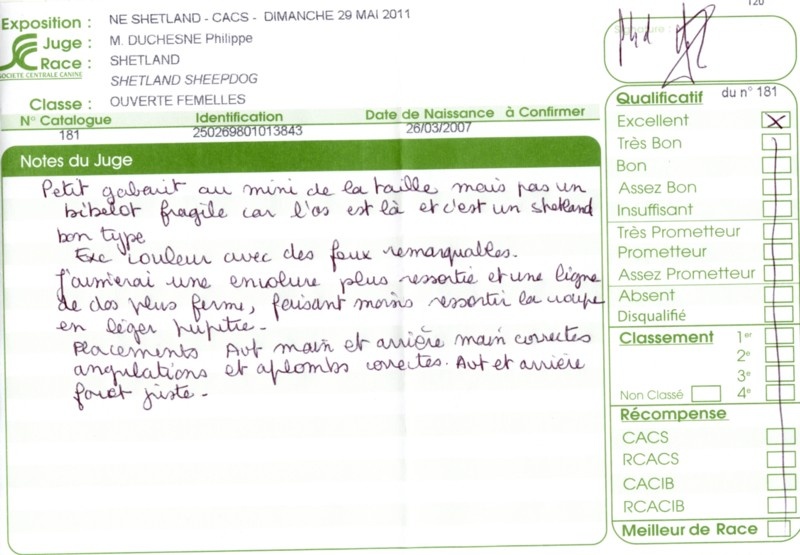 120
Exposition : NE SHETLAND - CACS - DIMANCHE 29 MAI 2011
Juge : M. DUCHESNE Philippe
Race : SHETLAND
SOCIETE CENTRALE CANINE
SHETLAND SHEEPDOG
Classe : OUVERTE FEMELLES
N° Catalogue Identification Date de Naissance à Confirmer
181 250269801013843 26/03/2007
Notes du Juge
Petit gabarit au mini de la taille mais pas un
bibelot fragile car l'os est là et c'est un shetland
bon type
Exc couleur avec des feux remarquables.
J'aimerai une encolure plus ressortie et une ligne
de dos plus ferme, faisant moins ressortir la croupe
en léger pupitre.
Placements Avt main et arrière main correctes
angulations et aplombs correctes. Avt et arrière
juste.
Signature :
Qualificatif du n° 181
Excellent X
Très Bon
Bon
Assez Bon
Insuffisant
Très Prometteur
Prometteur
Assez Prometteur
Absent
Disqualifié
Classement 1er
2e
3e
Non Classé 4e
Récompense
CACS
RCACS
CACIB
RCACIB
Meilleur de Race